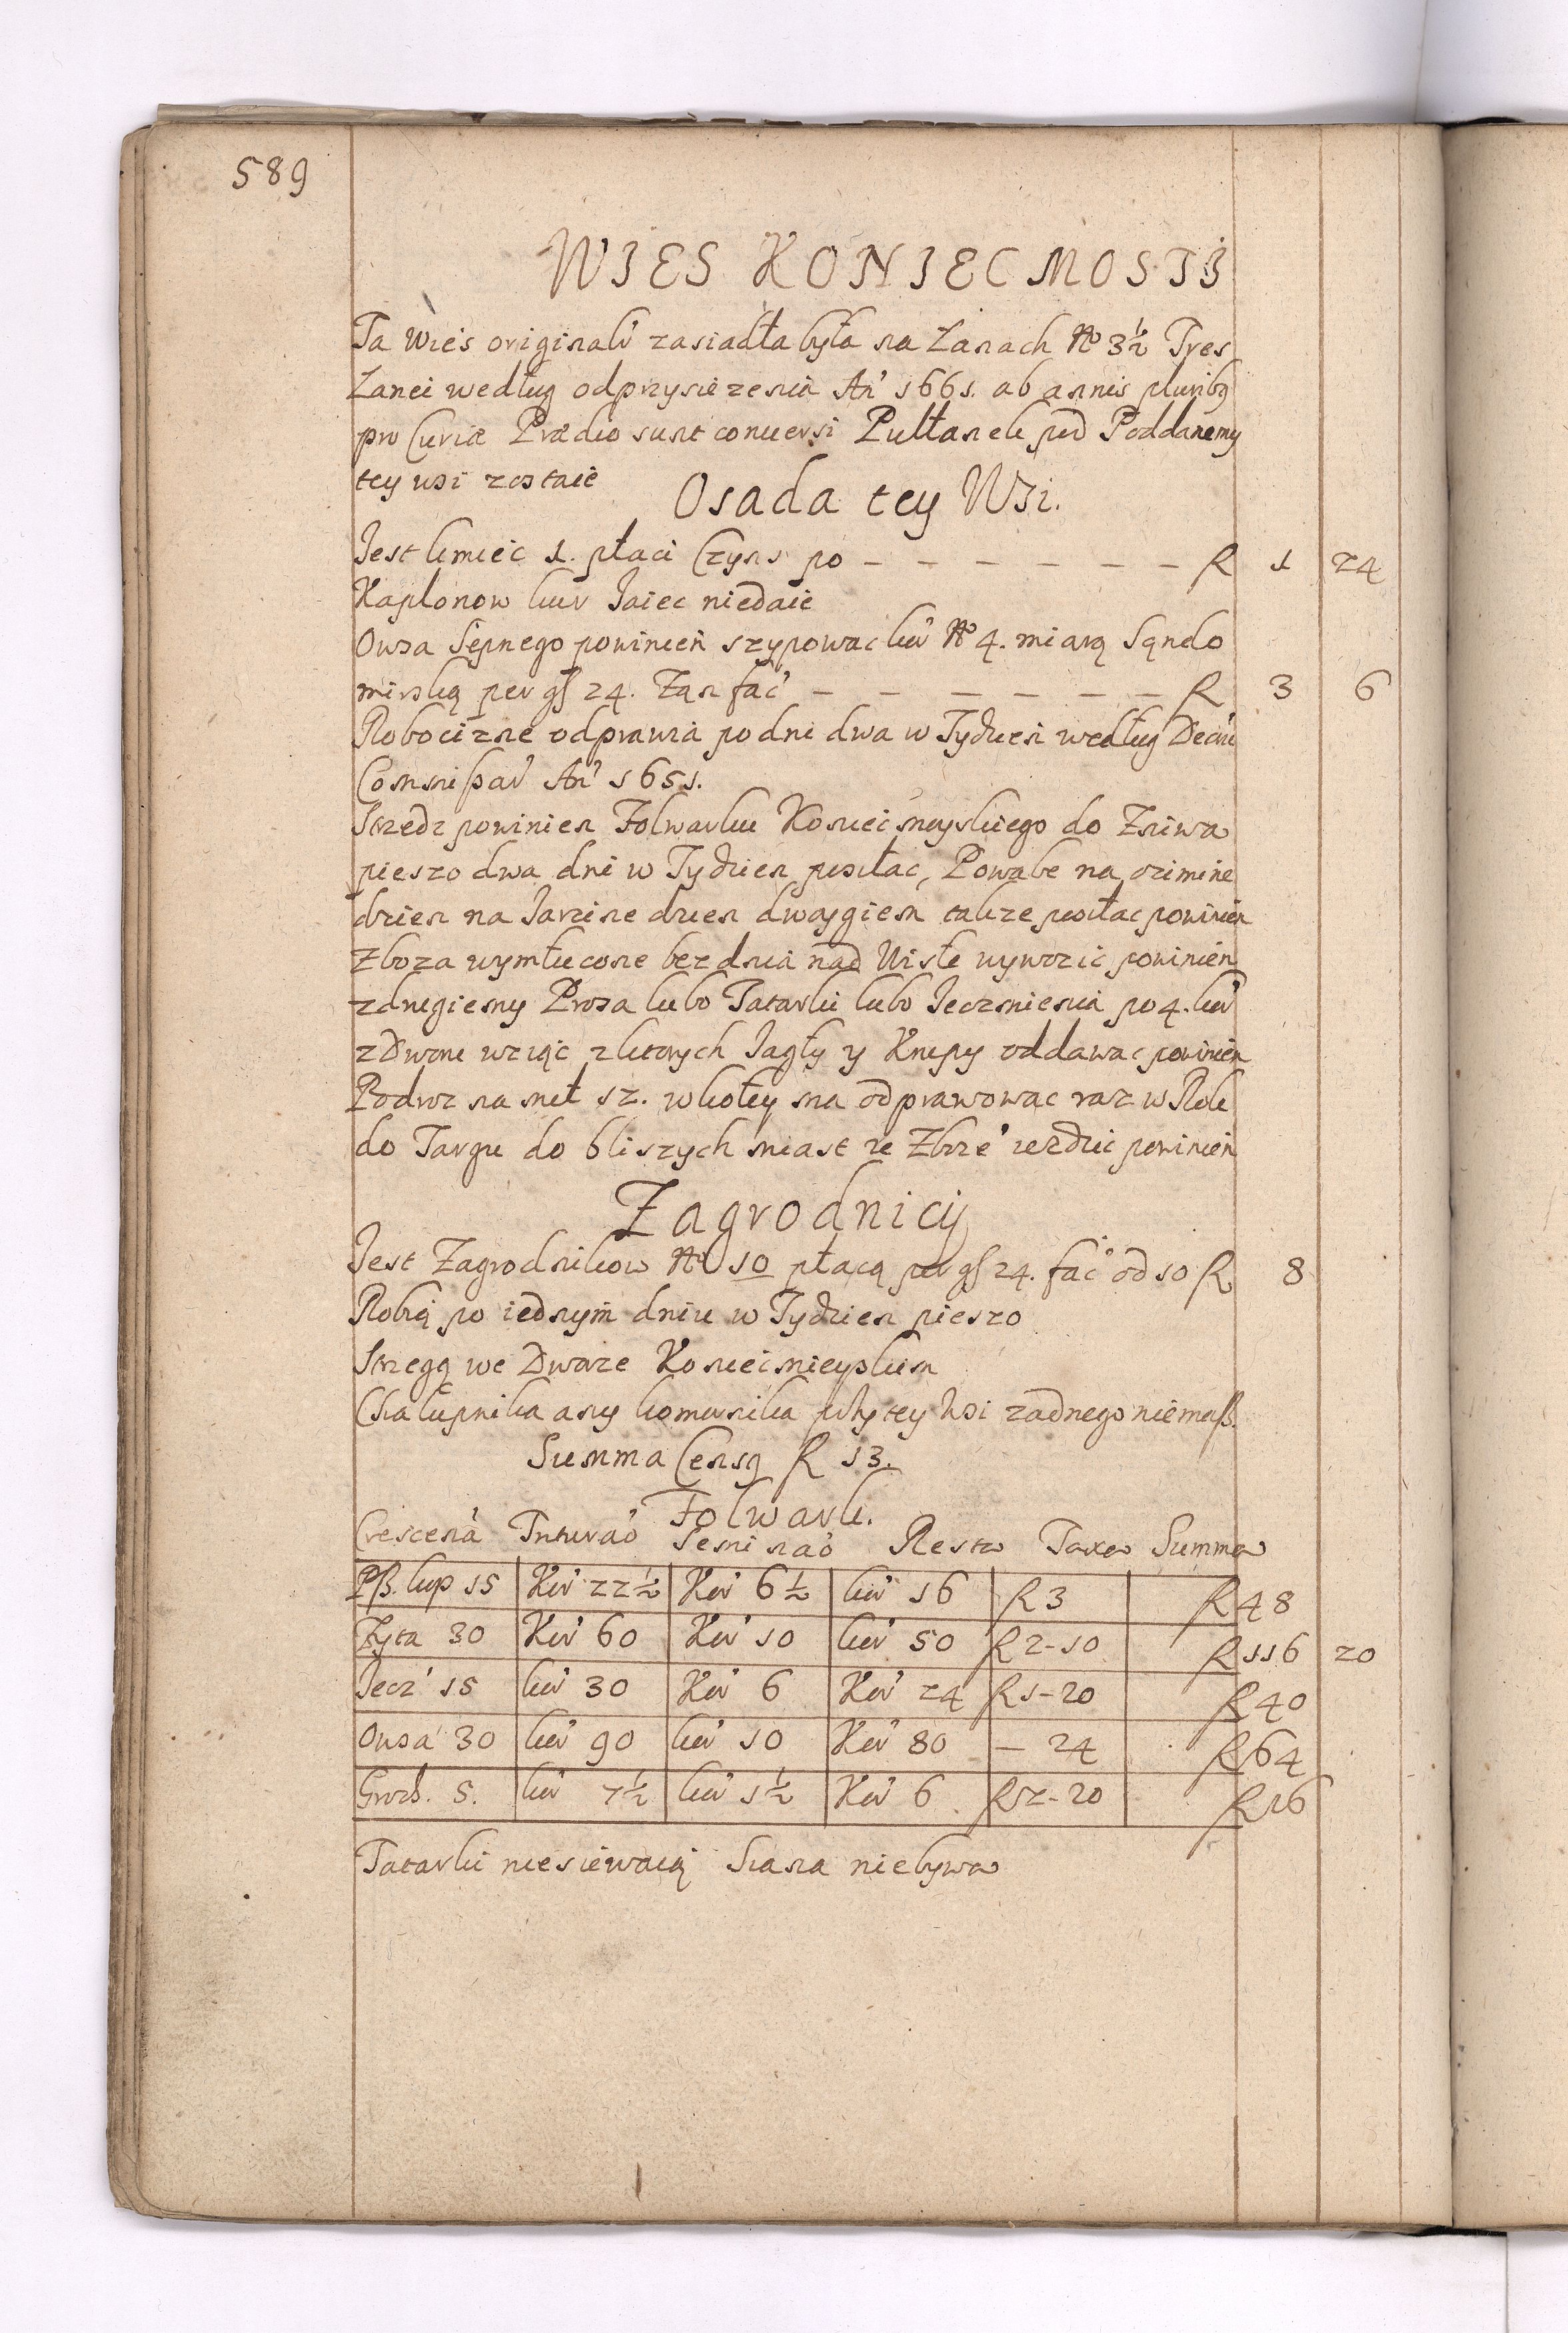 589
WIES KONIECMOSTJ
Ta Wieś originalr̃ zasiadła była na Łanach Nº 3½ Tres
Lanei według odprzysiężenia Añ 1661. ab annis pluribꝫ
pro Curiæ Prædio sunt conuersi Pułłanek pod Poddanemy
tey wsi zostaie
Osada tey Wsi.
Jest kmieć 1. płaci Czynsz po — — — — — — — R 1 24
Kapłonow kur Jaiec niedaie
Owsa Sepnego powinień szypowac kor̃ Nº 4. miarą Sąndo
mirską per gſ 24. Tąn fać — — — — — — R 3 6
Robociznę odprawia po dni dwa w Tydzień według Decrˀ
Commißar̃ Añ 1651.
Strzedz powinien Folwarku Koniecmoyskiego do Zniwa
pieszo dwa dni w Tydzien posłac, Powabę na oziminę
dzien na Jarzinę dzien dwoygiem takze posłac powinien
Zboza wymłucone bez dnia nad Wisłę wywozić powinien
z drugiemy Prosa lubo Tatarki lubo Jęczmienia po 4. kor̃
z Dworu wziąć z ktorych Jagły y Krupy oddawac powinien
Podroz na mil 12. w koley ma odprawowac raz w Rok
do Targu do bliszych miast ze Zboze͂ iezdzic powinien
Zagrodnicy
Jest Zagrodnikow Nº 10 płacą per gſ 24. fać od 10 R 8
Robią po iednym dniu w Tydzien pieszo
Strzegą we Dworze Koniecmieyskim
Chałupnika any komornika przy tey Wsi zadnego niemaß.
Summa Censꝫ R 13.
Folwark.
Crescenˀa Trituraˀo Seminaˀo Resta Taxa Summa
Pß. kop 15 Kor̃ 22½ Kor̃ 6½ kor̃ 16 R 3 R 48
Żyta 30 Kor̃ 60 Kor̃ 10 kor̃ 50 R 2-10 R 116 20
Jeczˀ 15 kor̃ 30 Kor̃ 6 Kor̃ 24 R 1-20 R 40
Owsa 30 kor̃ 90 kor̃ 10 Kor̃ 80 — 24 R 64
Groch. 5. kor̃ 7½ kor̃ 1½ Kor̃ 6 R 2-20 R 16
Tatarki niesiewaią Siana niebywa